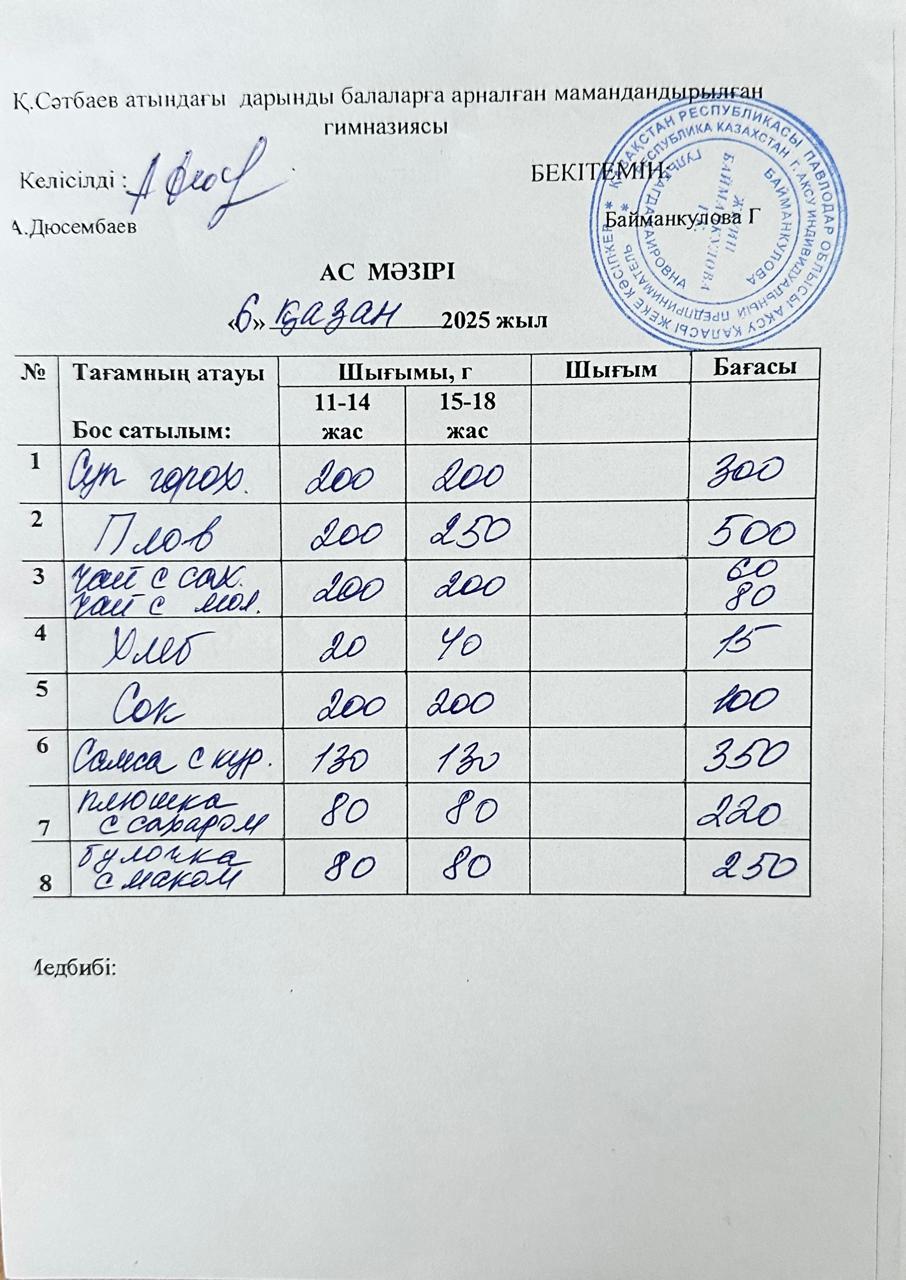 Қ.Сәтбаев атындағы дарынды балаларға арналған мамандандырылған
гимназиясы
Келісілді :
БЕКІТЕМІН:
А.Дюсембаев
Байманкулова Г
ҚАЗАҚСТАН РЕСПУБЛИКАСЫ ПАВЛОДАР ОБЛЫСЫ АҚСУ ҚАЛАСЫ ЖЕКЕ КӘСІПКЕР
РЕСПУБЛИКА КАЗАХСТАН Г. АКСУ ИНДИВИДУАЛЬНЫЙ ПРЕДПРИНИМАТЕЛЬ
БАЙМАНКУЛОВА
АС МӘЗІРІ
«6» қазан 2025 жыл
№ Тағамның атауы Шығымы, г Шығым Бағасы
Бос сатылым: 11-14 жас 15-18 жас
1 Суп горох. 200 200 300
2 Плов 200 250 500
3 Чай с сах. 200 200 60
Чай с мол. 80
4 Хлеб 20 40 15
5 Сок 200 200 100
6 Самса с кур. 130 130 350
7 плюшка 80 80 220
с сахаром
8 булочка 80 80 250
с маком
Медбибі: